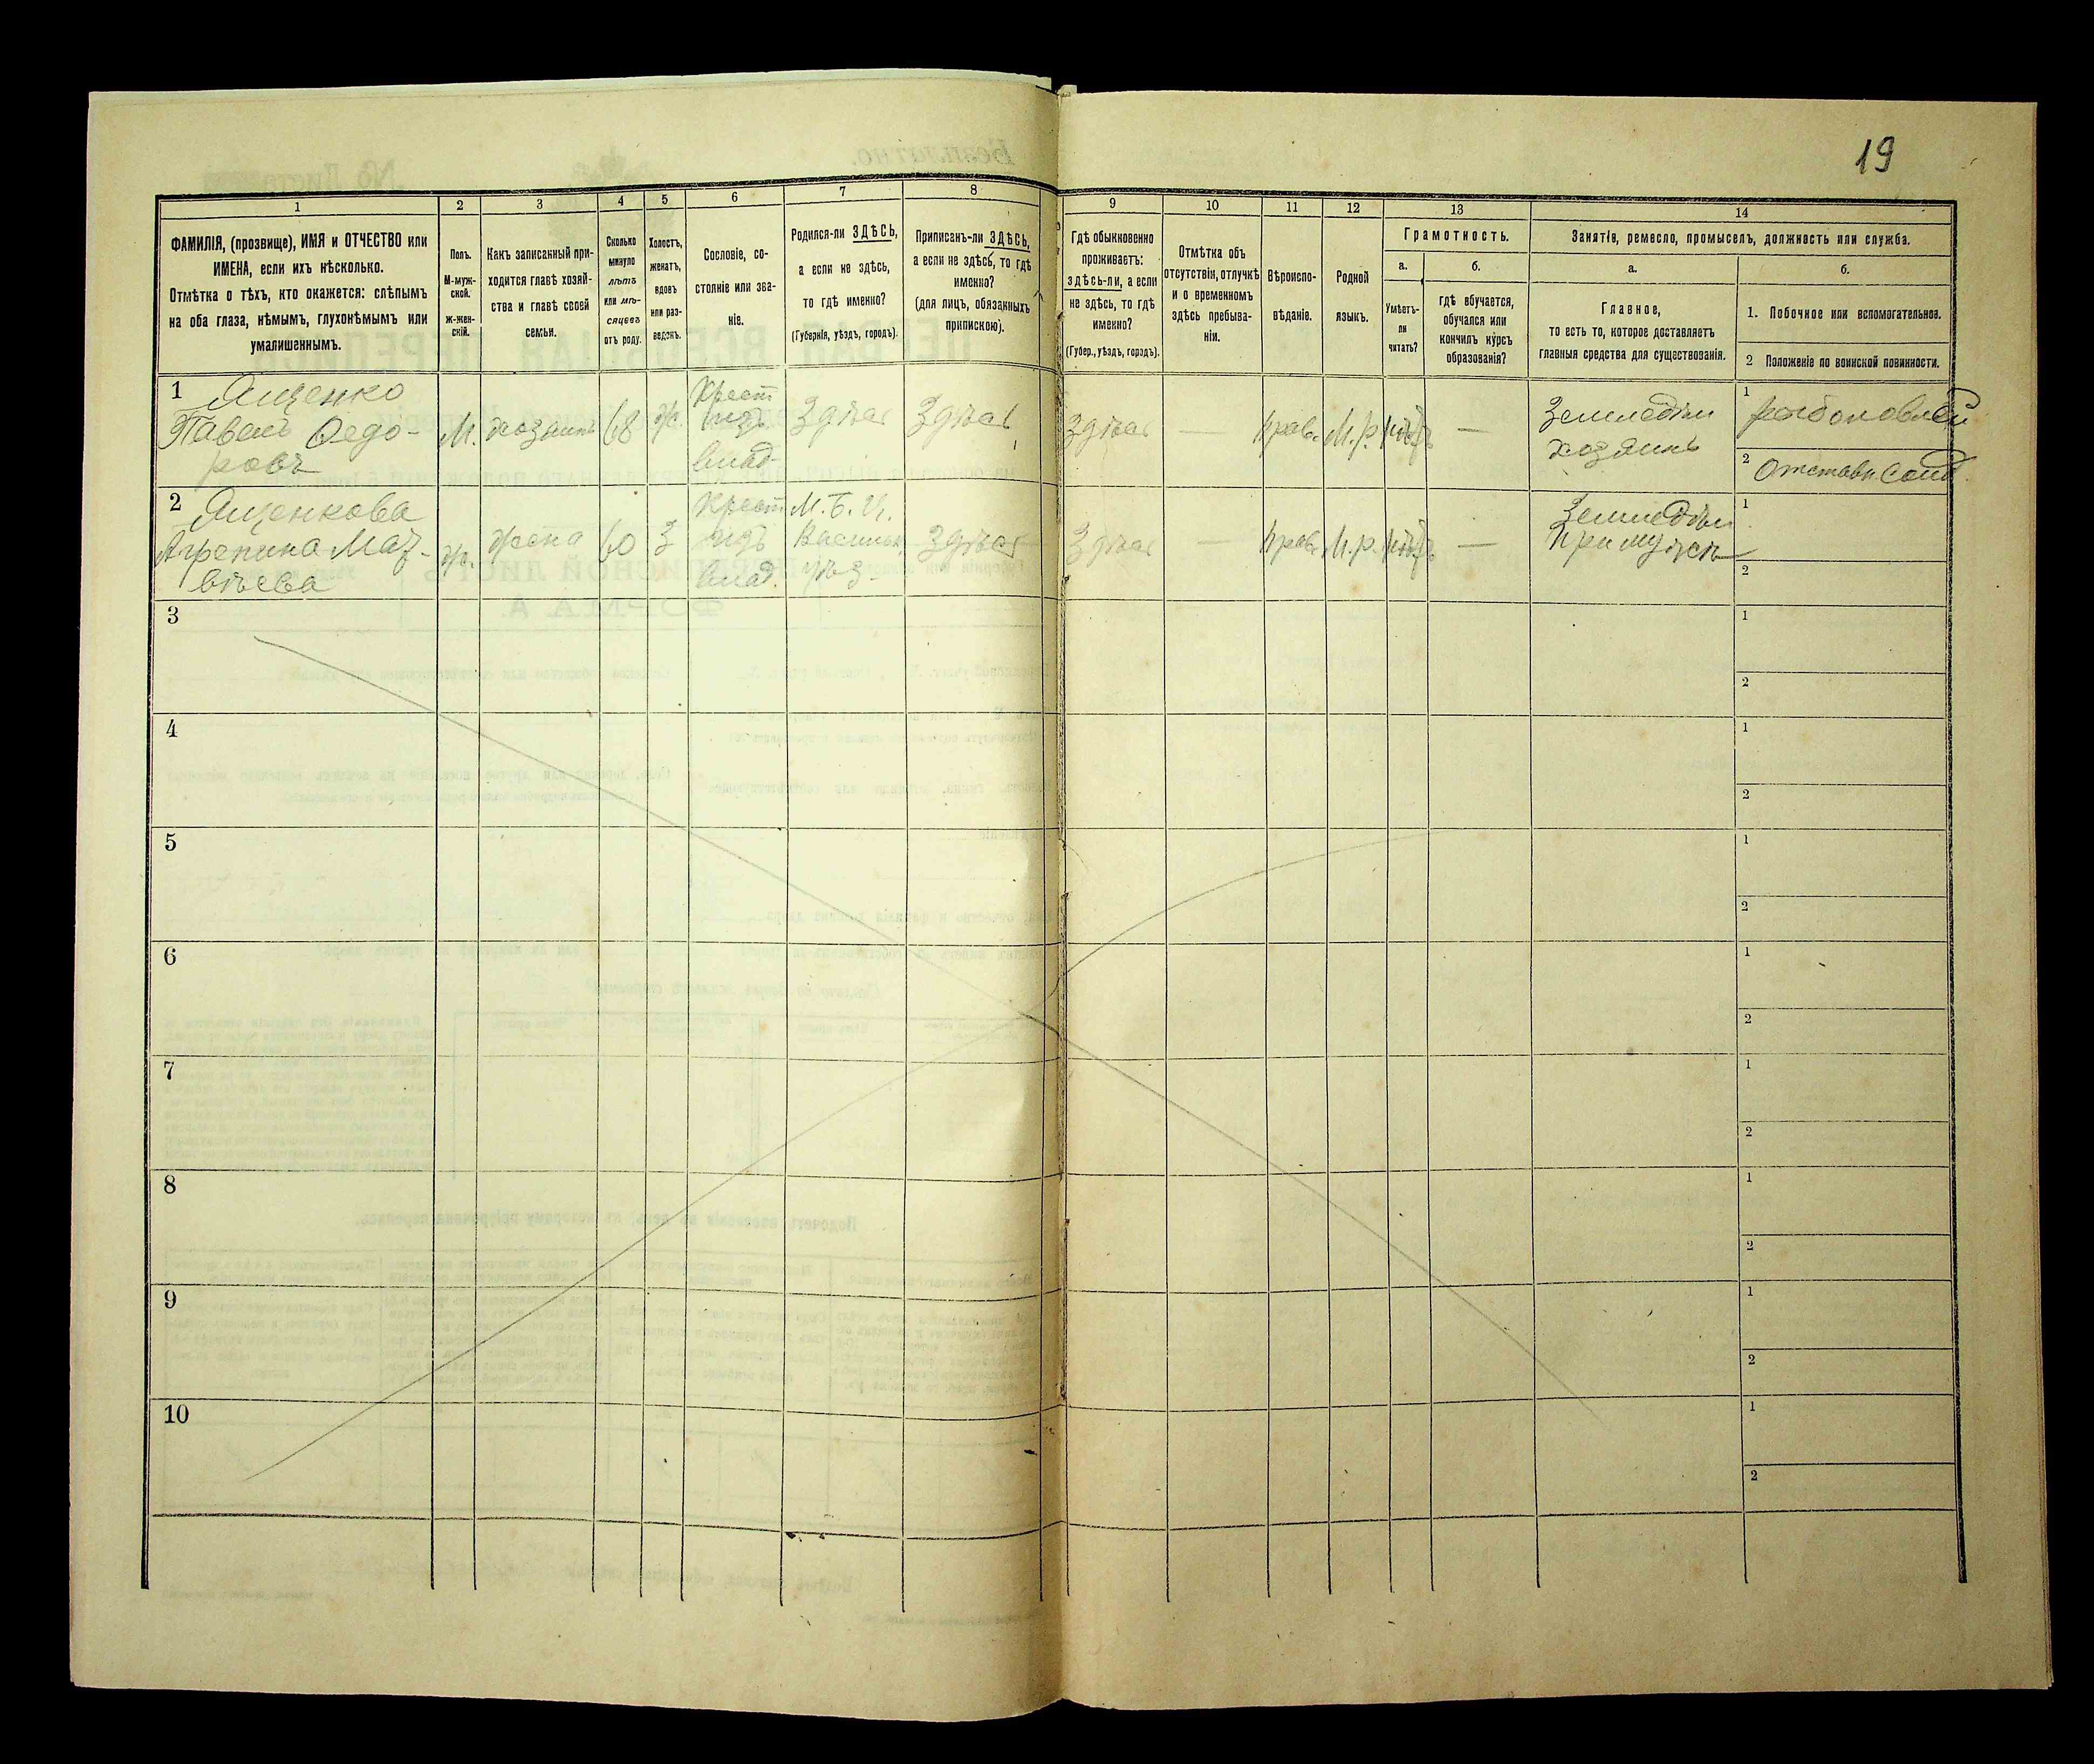 19
1
2
3
4
5
6
7
8
9
10
11
12
13
14
ФАМИЛІЯ, (прозвище), ИМЯ и ОТЧЕСТВО или
ИМЕНА, если ихъ нѣсколько.
Отмѣтка о тѣхъ, кто окажется: слѣпымъ
на оба глаза, нѣмымъ, глухонѣмымъ или
умалишеннымъ.
Полъ.
М-муж-
ской.
ж-жен-
скій.
Какъ записанный при-
ходится главѣ хозяй-
ства и главѣ своей
семьи.
Сколько
минуло
лѣтъ
или мѣ-
сяцевъ
отъ роду.
Холостъ,
женатъ,
вдовъ
или раз-
веденъ.
Сословіе, со-
стояніе или зва-
ніе.
Родился-ли ЗДѢСЬ,
а если не здѣсь,
то гдѣ именно?
(Губернія, уѣздъ, городъ).
Приписанъ-ли ЗДѢСЬ,
а если не здѣсь, то гдѣ
именно?
(для лицъ, обязанныхъ
припискою).
Гдѣ обыкновенно
проживаетъ:
здѣсь-ли, а если
не здѣсь, то гдѣ
именно?
(Губер., уѣздъ, городъ).
Отмѣтка объ
отсутствіи, отлучкѣ
и о временномъ
здѣсь пребыва-
ніи.
Вѣроиспо-
вѣданіе.
Родной
языкъ.
Грамотность.
а.
б.
Умѣетъ-
ли
читать?
гдѣ обучается,
обучался или
кончилъ курсъ
образованія?
Занятіе, ремесло, промыселъ, должность или служба.
а.
б.
Главное,
то есть то, которое доставляетъ
главныя средства для существованія.
1. Побочное или вспомогательное.
2 Положеніе по воинской повинности.
1 Ященко
Павелъ Федо-
ровъ
М.
хозяинъ
68
ж.
Крест
изъ
влад-
Здѣсь
Здѣсь
Здѣсь
—
Прав.
М.р.
нѣтъ
—
Земледѣл
хозяинъ
1 рыболовлей
2 Отставн. Солд.
2 Ященкова
Агрепина Мат-
вѣева
ж.
жена
60
З
Крест
изъ
влад.
Васильк.
уѣз-
Здѣсь
Здѣсь
—
Прав.
М.р.
нѣтъ
—
Земледѣл
При мужѣ
1
2
3
1
2
4
1
2
5
1
2
6
1
2
7
1
2
8
1
2
9
1
2
10
1
2